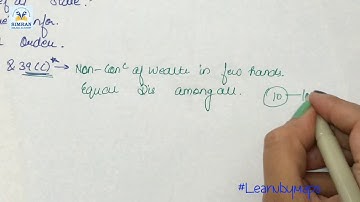 SIMRAN
State.
for
Order.
& 39(C)* → Non-Conc of Wealth in few hands
Equal Dis among all.
10 — 10
#Learnbymaps